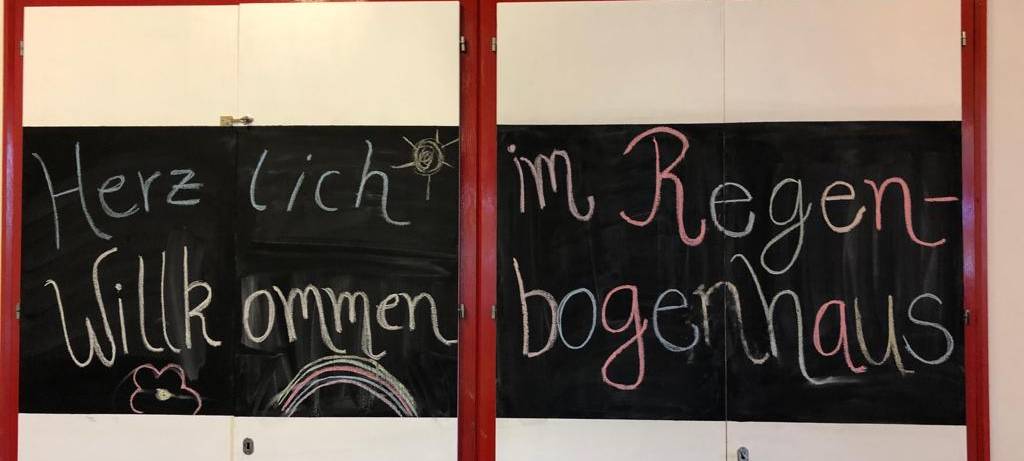 Herzlich
Willkommen
im Regen-
bogenhaus